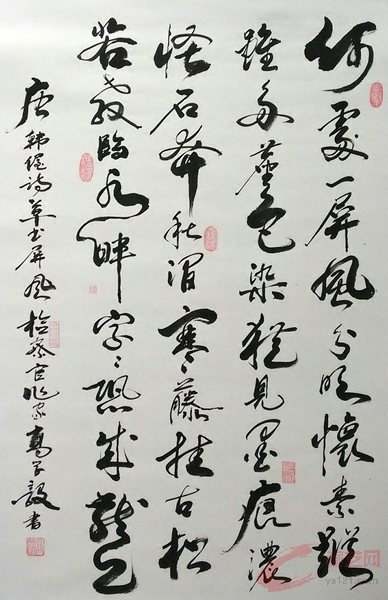 何處一屏風分明懷素蹤
雖多塵色染猶見墨痕濃
怪石奔秋澗寒藤挂古松
若教臨水畔字〻恐成龍
唐韓偓詩草书屏風检察官作家書